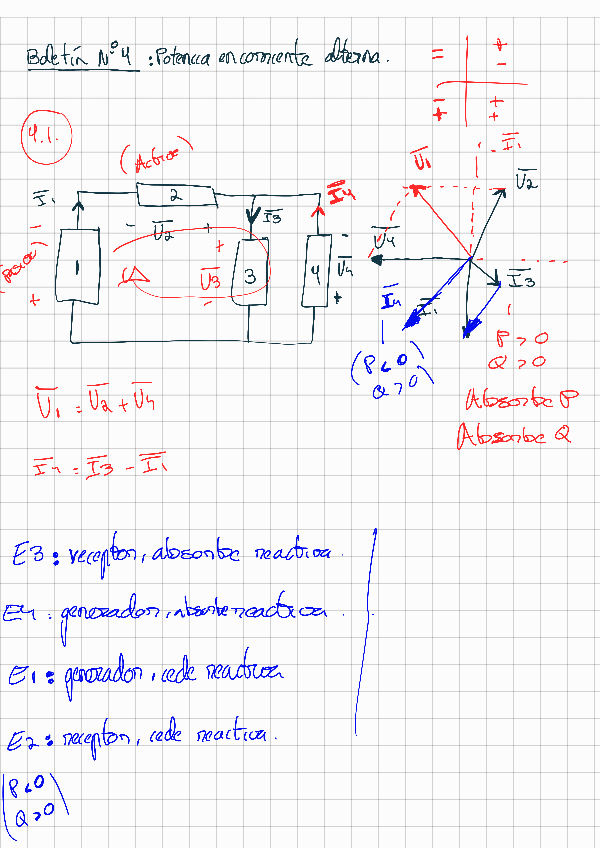 Boletín Nº4 : Potencia en corriente alterna.
= + -
- + + +
4.1.
(Activo)
I1 2 I4
I3
- U2 +
- 1 + + U3 - 3 4 - U4 +
U1 - I1 U2
U4 I3
I4 I1
(P<0
Q>0)
P>0
Q>0
Absorbe P
Absorbe Q
U1 = U2 + U4
I4 = I3 - I1
E3: receptor, absorbe reactiva.
E4: generador, absorbe reactiva.
E1: generador, cede reactiva
E2: receptor, cede reactiva.
(P<0
Q>0)